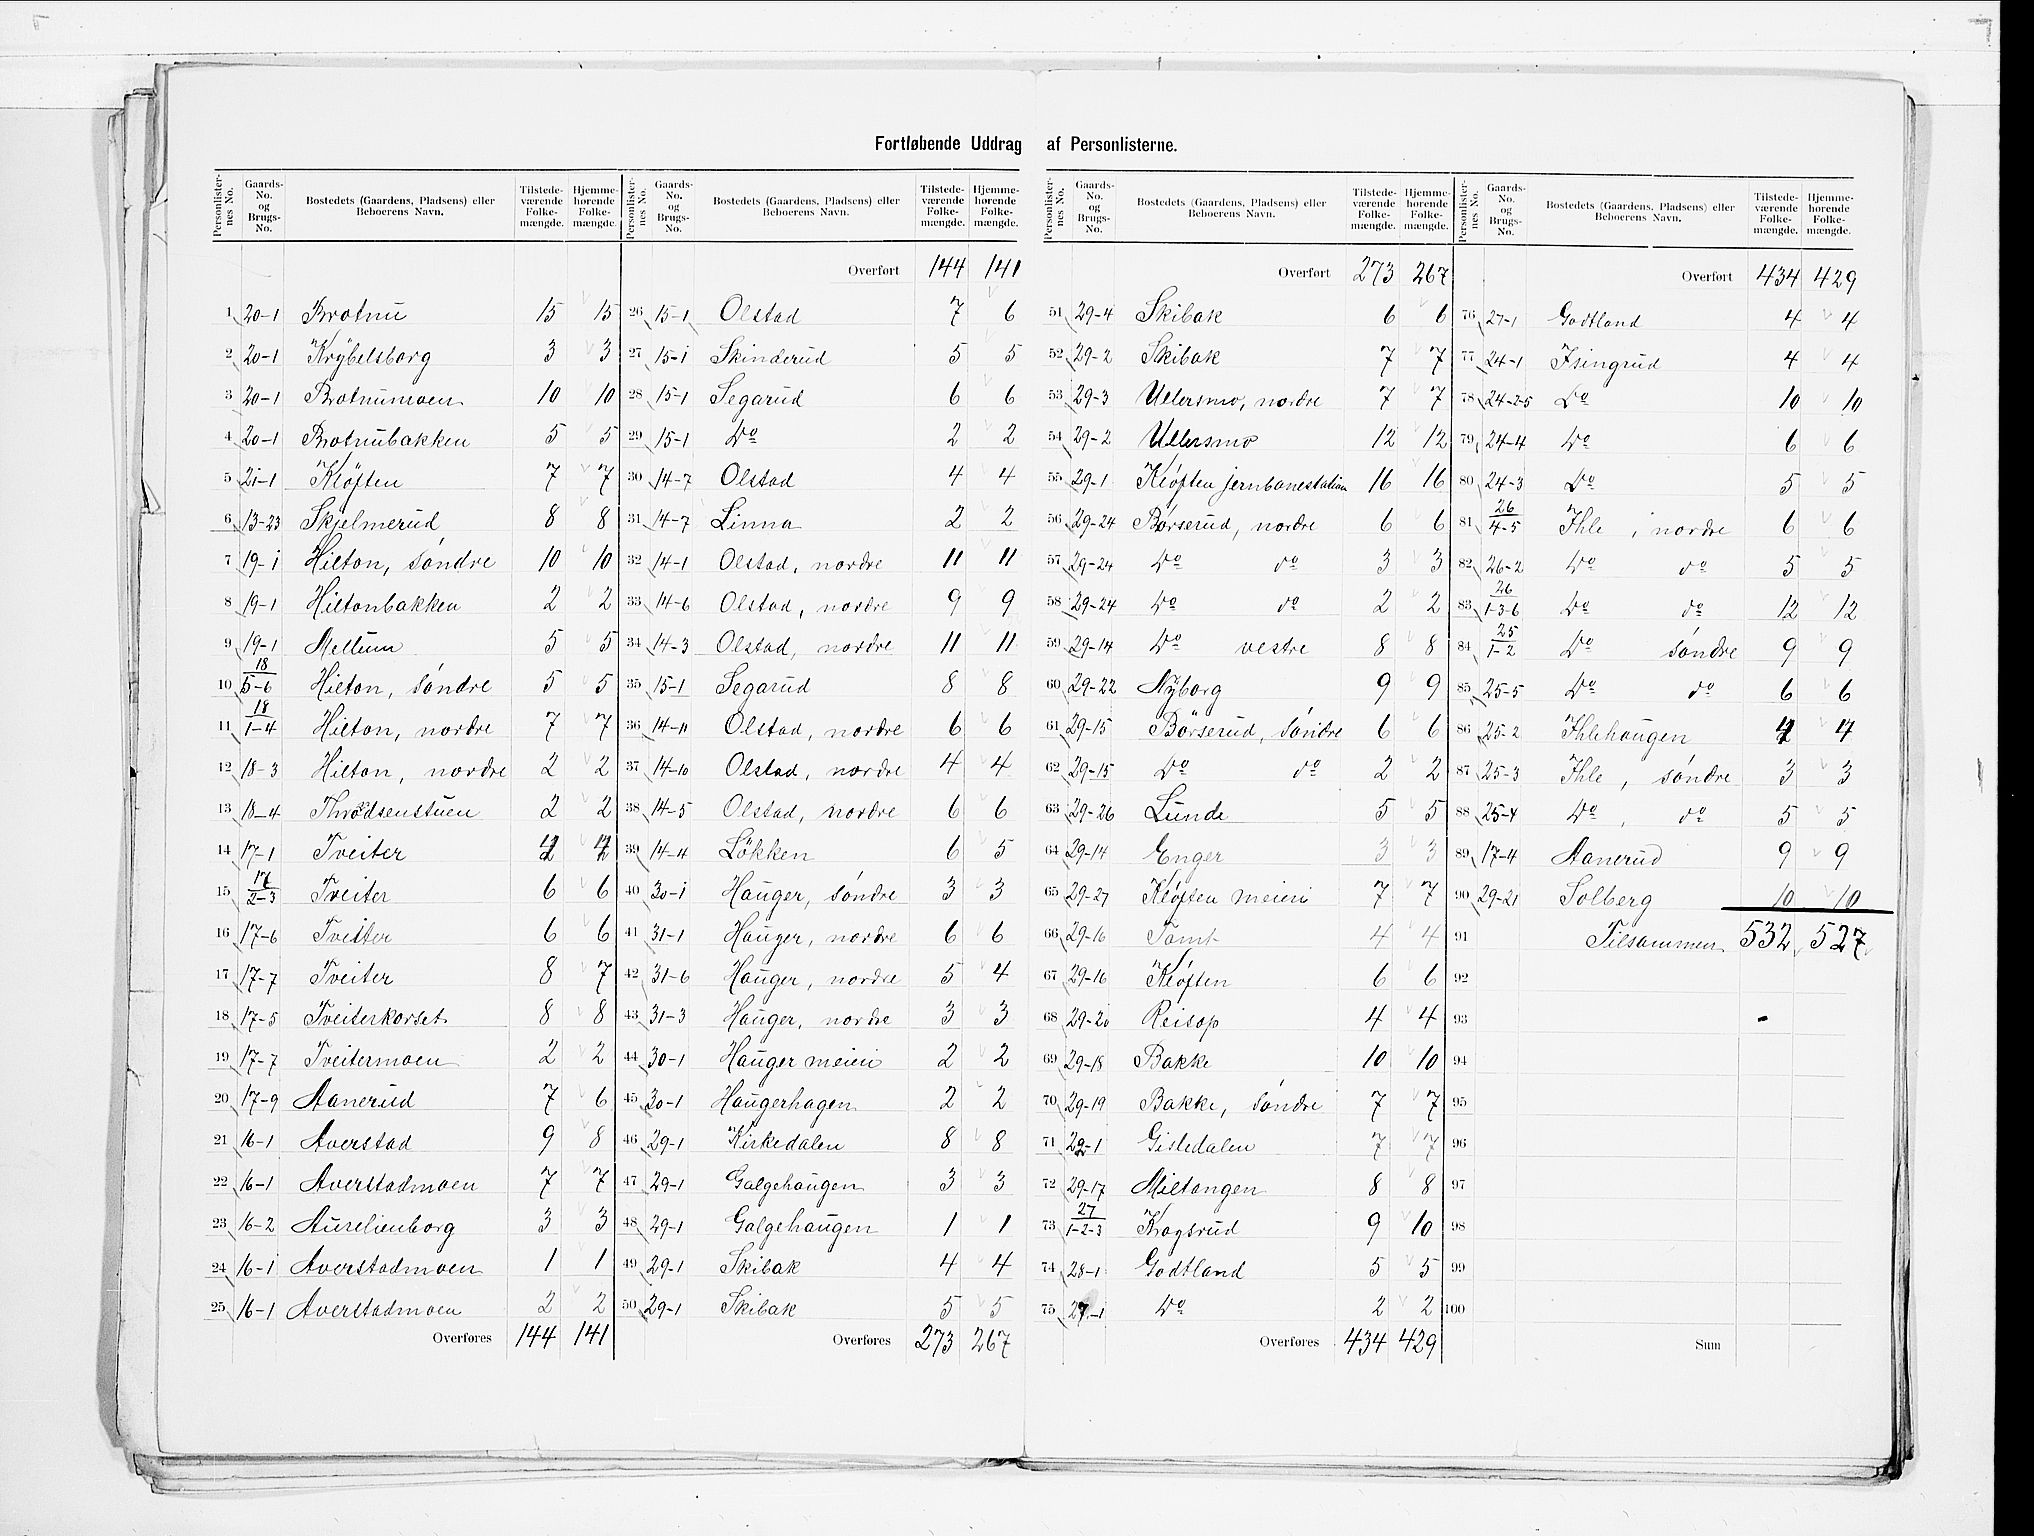 Fortløbende Uddrag af Personlisterne.
Personlisternes No. Gaards-No. og Brugs-No. Bostedets (Gaardens, Pladsens) eller Beboerens Navn. Tilstedeværende Folkemængde. Hjemmehørende Folkemængde.
1 20-1 Brotnu 15 15
2 20-1 Krÿbelsborg 3 3
3 20-1 Brotnumoen 10 10
4 20-1 Brotnubakken 5 5
5 21-1 Kløften 7 7
6 13-23 Skjelmerud 8 8
7 19-1 Hilton, søndre 10 10
8 19-1 Hiltonbakken 2 2
9 19-1 Mellum 5 5
10 18/5-6 Hilton, søndre 5 5
11 18/1-4 Hilton, nordre 7 7
12 18-3 Hilton, nordre 2 2
13 18-4 Throdsenstuen 2 2
14 17-1 Tveiter 4 4
15 17/2-3 Tveiter 6 6
16 17-6 Tveiter 6 6
17 17-7 Tveiter 8 7
18 17-5 Tveiterkorset 8 8
19 17-7 Tveitermoen 2 2
20 17-9 Aanerud 7 6
21 16-1 Averstad 9 8
22 16-1 Averstadmoen 7 7
23 16-2 Aurelienborg 3 3
24 16-1 Averstadmoen 1 1
25 16-1 Averstadmoen 2 2
Overføres 144 141
Personlisternes No. Gaards-No. og Brugs-No. Bostedets (Gaardens, Pladsens) eller Beboerens Navn. Tilstedeværende Folkemængde. Hjemmehørende Folkemængde.
Overført 144 141
26 15-1 Olstad 7 6
27 15-1 Skinderud 5 5
28 15-1 Segarud 6 6
29 15-1 Do 2 2
30 14-7 Olstad 4 4
31 14-7 Linna 2 2
32 14-1 Olstad, nordre 11 11
33 14-6 Olstad, nordre 9 9
34 14-3 Olstad, nordre 11 11
35 15-1 Segarud 8 8
36 14-11 Olstad, nordre 6 6
37 14-10 Olstad, nordre 4 4
38 14-5 Olstad, nordre 6 6
39 14-4 Løkken 6 5
40 30-1 Hauger, søndre 3 3
41 31-1 Hauger, nordre 6 6
42 31-6 Hauger, nordre 5 4
43 31-3 Hauger, nordre 3 3
44 30-1 Hauger meieri 2 2
45 30-1 Haugerhagen 2 2
46 29-1 Kirkedalen 8 8
47 29-1 Galgehaugen 3 3
48 29-1 Galgehaugen 1 1
49 29-1 Skibak 4 4
50 29-1 Skibak 5 5
Overføres 273 267
Personlisternes No. Gaards-No. og Brugs-No. Bostedets (Gaardens, Pladsens) eller Beboerens Navn. Tilstedeværende Folkemængde. Hjemmehørende Folkemængde.
Overført 273 267
51 29-4 Skibak 6 6
52 29-2 Skibak 7 7
53 29-3 Ullersmo, nordre 7 7
54 29-2 Ullersmo 12 12
55 29-1 Kløften jernbanestation 16 16
56 29-24 Børserud, nordre 6 6
57 29-24 Do do 3 3
58 29-24 Do do 2 2
59 29-14 Do vestre 8 8
60 29-22 Nÿborg 9 9
61 29-15 Børserud, søndre 6 6
62 29-15 Do do 2 2
63 29-26 Lunde 5 5
64 29-14 Enger 3 3
65 29-27 Kløften meieri 7 7
66 29-16 Tomt 4 4
67 29-16 Kløften 6 6
68 29-20 Reisop 4 4
69 29-18 Bakke 10 10
70 29-19 Bakke, søndre 7 7
71 22-1 Gisledalen 7 7
72 29-17 Miltangen 8 8
73 27/1-2-3 Krogsrud 9 10
74 28-1 Godtland 5 5
75 27-1 Do 2 2
Overføres 434 429
Personlisternes No. Gaards-No. og Brugs-No. Bostedets (Gaardens, Pladsens) eller Beboerens Navn. Tilstedeværende Folkemængde. Hjemmehørende Folkemængde.
Overført 434 429
76 27-1 Godtland 4 4
77 24-1 Isingrud 4 4
78 24-2-5 Do 10 10
79 24-4 Do 6 6
80 24-3 Do 5 5
81 26/4-5 Ihle, nordre 6 6
82 26-2 Do do 5 5
83 26/1-3-6 Do do 12 12
84 25/1-2 Do søndre 9 9
85 25-5 Do do 6 6
86 25-2 Ihlehaugen 4 4
87 25-3 Ihle, søndre 3 3
88 25-4 Do, do 5 5
89 17-4 Aanerud 9 9
90 29-21 Solberg 10 10
91 Tilsammen 532 527
92
93
94
95
96
97
98
99
100
Sum